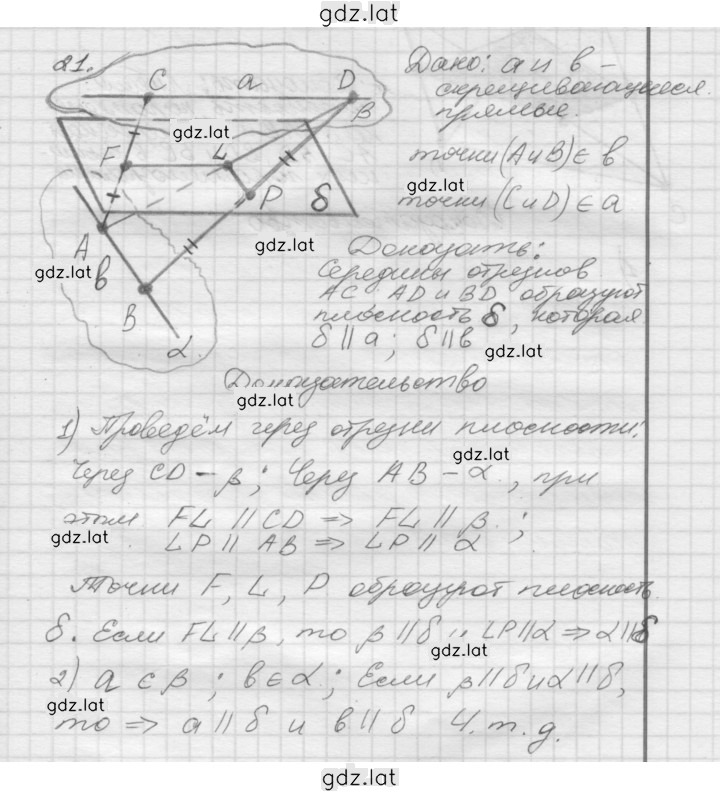 gdz.lat
21.
C a D
β
Дано: a и b –
скрещивающиеся
прямые.
gdz.lat
F L
точки (A и B) ∈ b
P δ
gdz.lat
точки (C и D) ∈ a
A
gdz.lat
Доказать:
gdz.lat
b
B
α
Середины отрезков
AC, AD и BD образуют
плоскость δ, которая
δ || a; δ || b
gdz.lat
Доказательство
gdz.lat
1) Проведём через отрезки плоскости:
gdz.lat
Через CD – β; Через AB – α, при
этом FL || CD ⇒ FL || β;
gdz.lat
LP || AB ⇒ LP || α
Точки F, L, P образуют плоскость
δ. Если FL || β, то β || δ и LP || α ⇒ α || δ
gdz.lat
2) a ∈ β; b ∈ α; Если β || δ и α || δ,
gdz.lat
то ⇒ a || δ и b || δ Ч.т.д.
gdz.lat